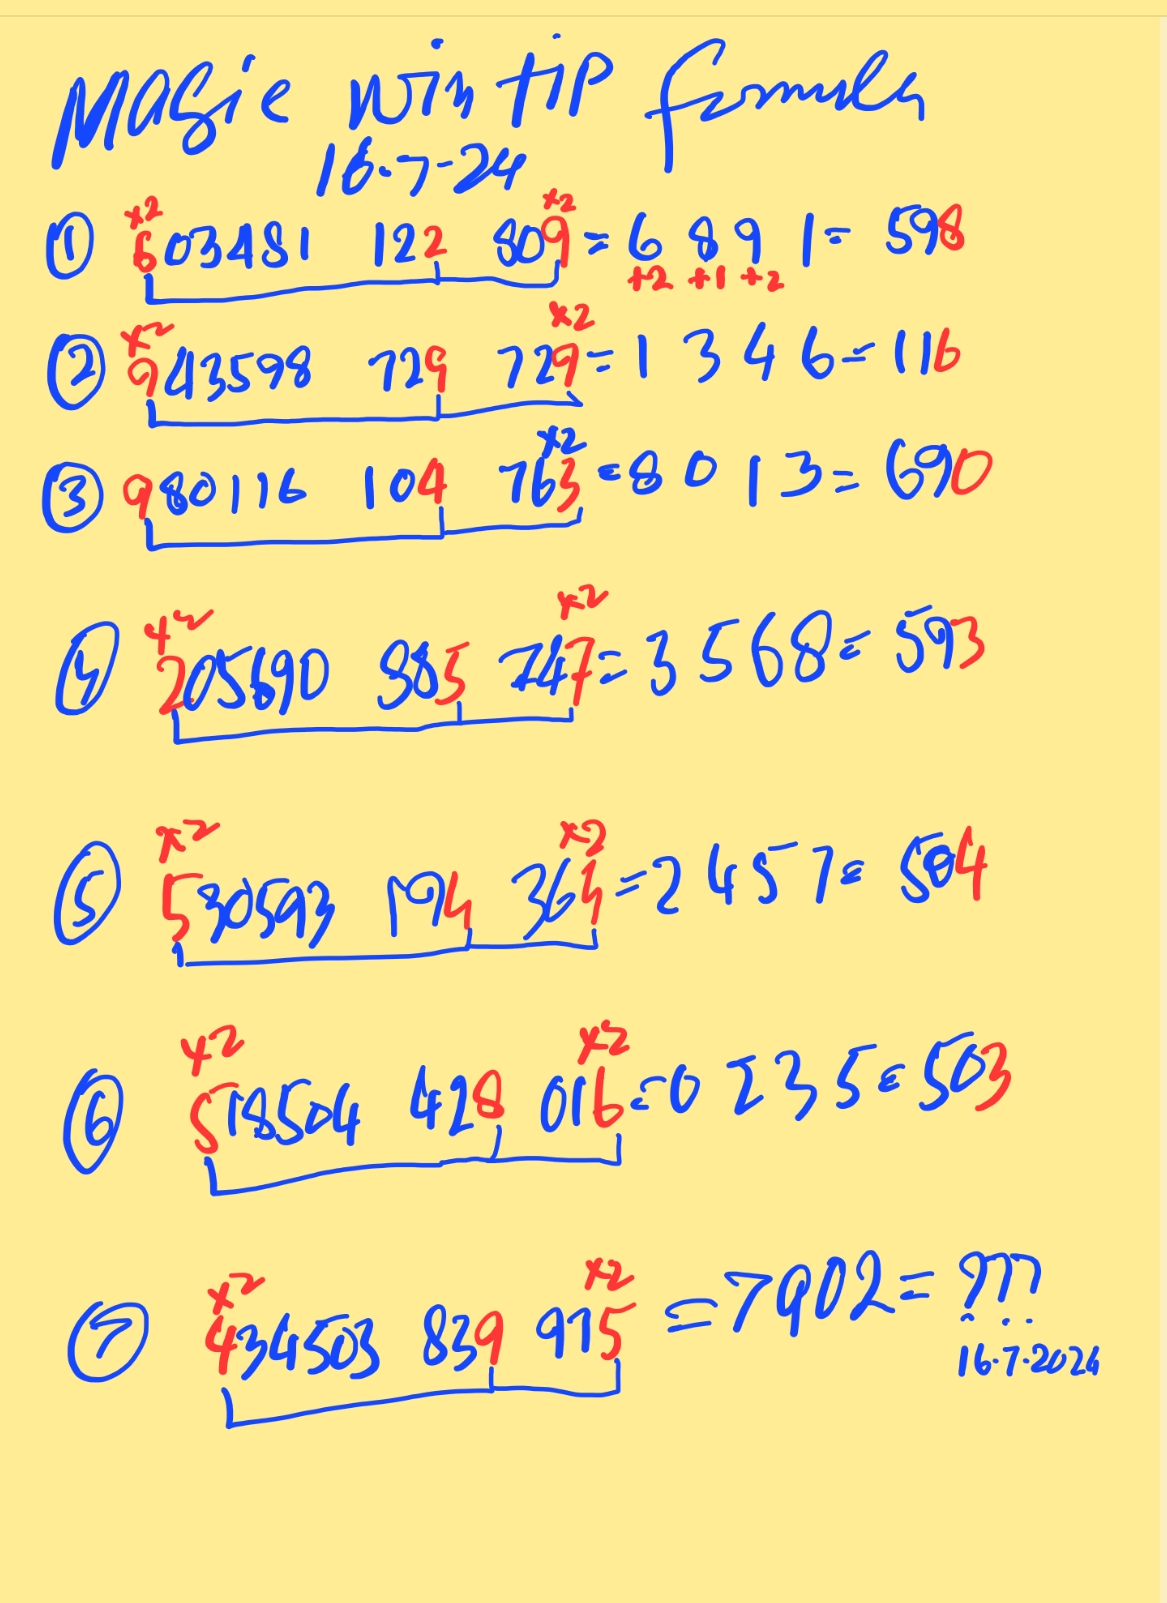 Magic win tip formula
16.7-24
x2 x2
① 603481 122 809 = 6 8 9 1 = 598
+2 +1 +2
x2 x2
② 943598 729 729 = 1 3 4 6 = 116
x2
③ 980116 104 763 = 8 0 1 3 = 690
x2 x2
④ 205690 385 747 = 3 5 6 8 = 593
x2 x2
⑤ 530593 194 364 = 2 4 5 7 = 504
x2 x2
⑥ 518504 428 016 = 0 2 3 5 = 503
x2 x2
⑦ 434503 839 975 = 7902 = ???
16.7.2024